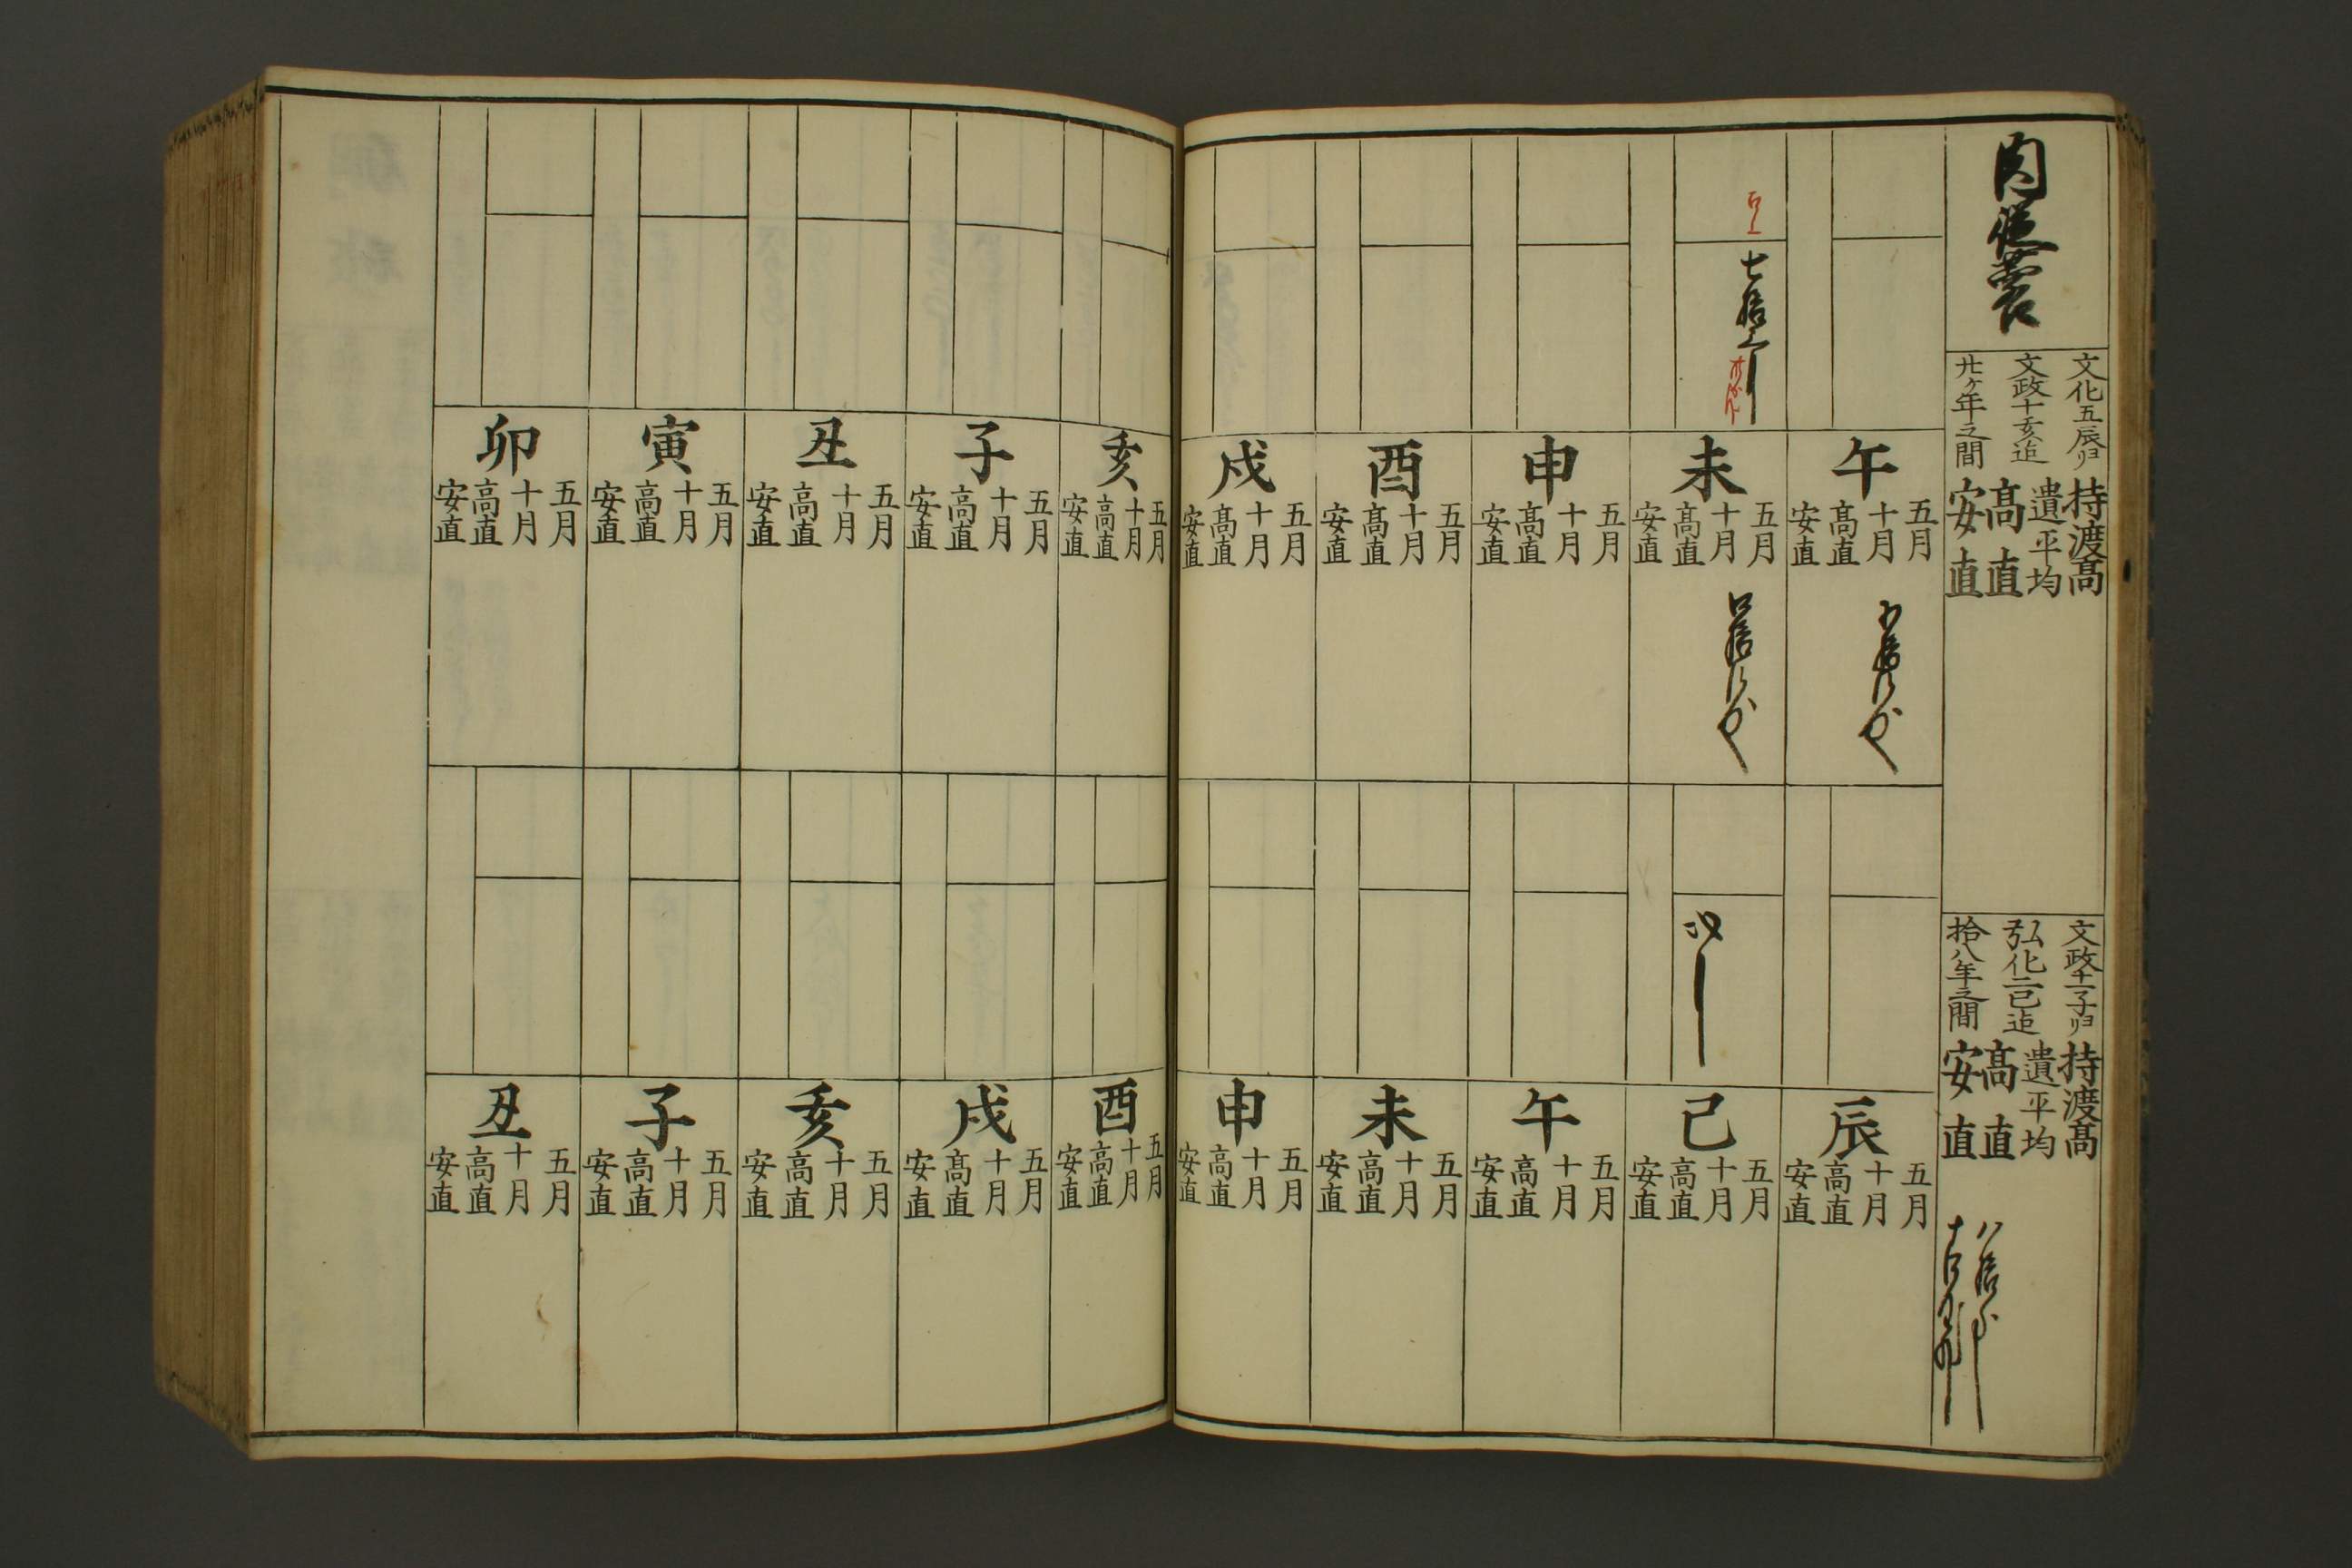 肉蓯蓉
文化五辰ゟ
文政十亥迄
廿ヶ年之間
持渡髙
遺平均
髙直
安直
文政十一子ゟ
弘化二巳迄
拾八年之間
持渡髙
遺平均
髙直
安直
午
五月
十月
髙直
安直
未
五月
十月
髙直
安直
申
五月
十月
髙直
安直
酉
五月
十月
髙直
安直
戌
五月
十月
髙直
安直
辰
五月
十月
髙直
安直
巳
五月
十月
髙直
安直
午
五月
十月
髙直
安直
未
五月
十月
髙直
安直
申
五月
十月
髙直
安直
亥
五月
十月
髙直
安直
子
五月
十月
髙直
安直
丑
五月
十月
髙直
安直
寅
五月
十月
髙直
安直
卯
五月
十月
髙直
安直
酉
五月
十月
髙直
安直
戌
五月
十月
髙直
安直
亥
五月
十月
髙直
安直
子
五月
十月
髙直
安直
丑
五月
十月
髙直
安直